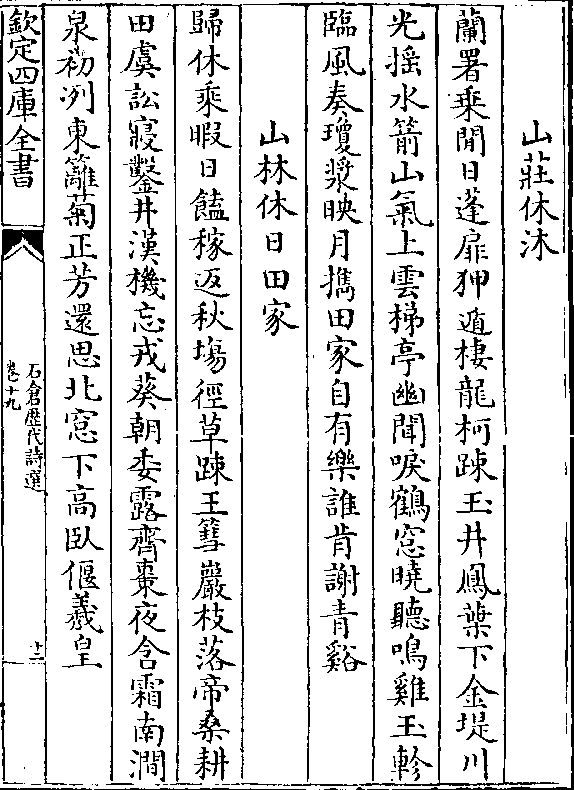 山莊休沐
蘭署乘閒日蓬扉狎遁棲龍柯踈玉井鳳葉下金堤川
光揺水箭山氣上雲梯亭幽聞唳鶴窓曉聽鳴雞玉軫
臨風奏瓊漿映月擕田家自有樂誰肯謝青谿
山林休日田家
歸休乘暇日饁稼返秋塲徑草踈王篲巖枝落帝桑耕
田虞訟寢鑿井漢機忘戎葵朝委露齊棗夜含霜南澗
泉初冽東籬菊正芳還思北窓下高臥偃羲皇
欽定四庫全書
石倉歴代詩選
卷十九
十二